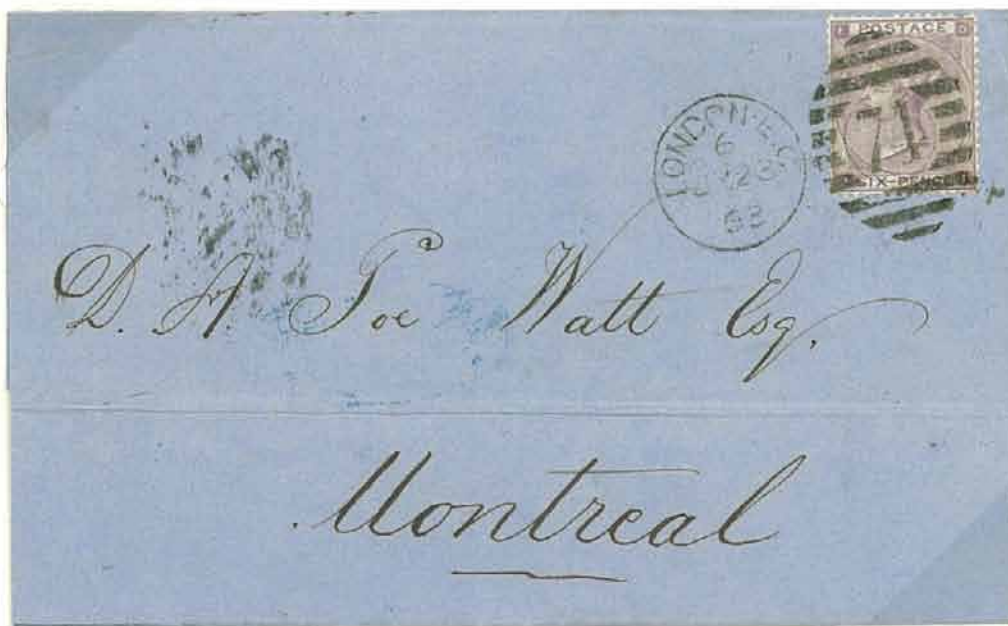 POSTAGE
71
SIX-PENCE
LONDON·E.C
6
D. A. Poe Watt Esq.
Montreal